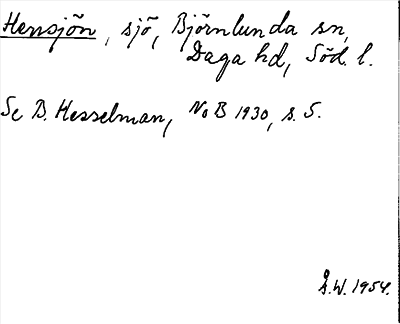 Hensjön, sjö, Björnlunda sn,
Daga hd, Söd. l.
Se B. Hesselman, NoB 1930, s. 5.
Å.W. 1954.